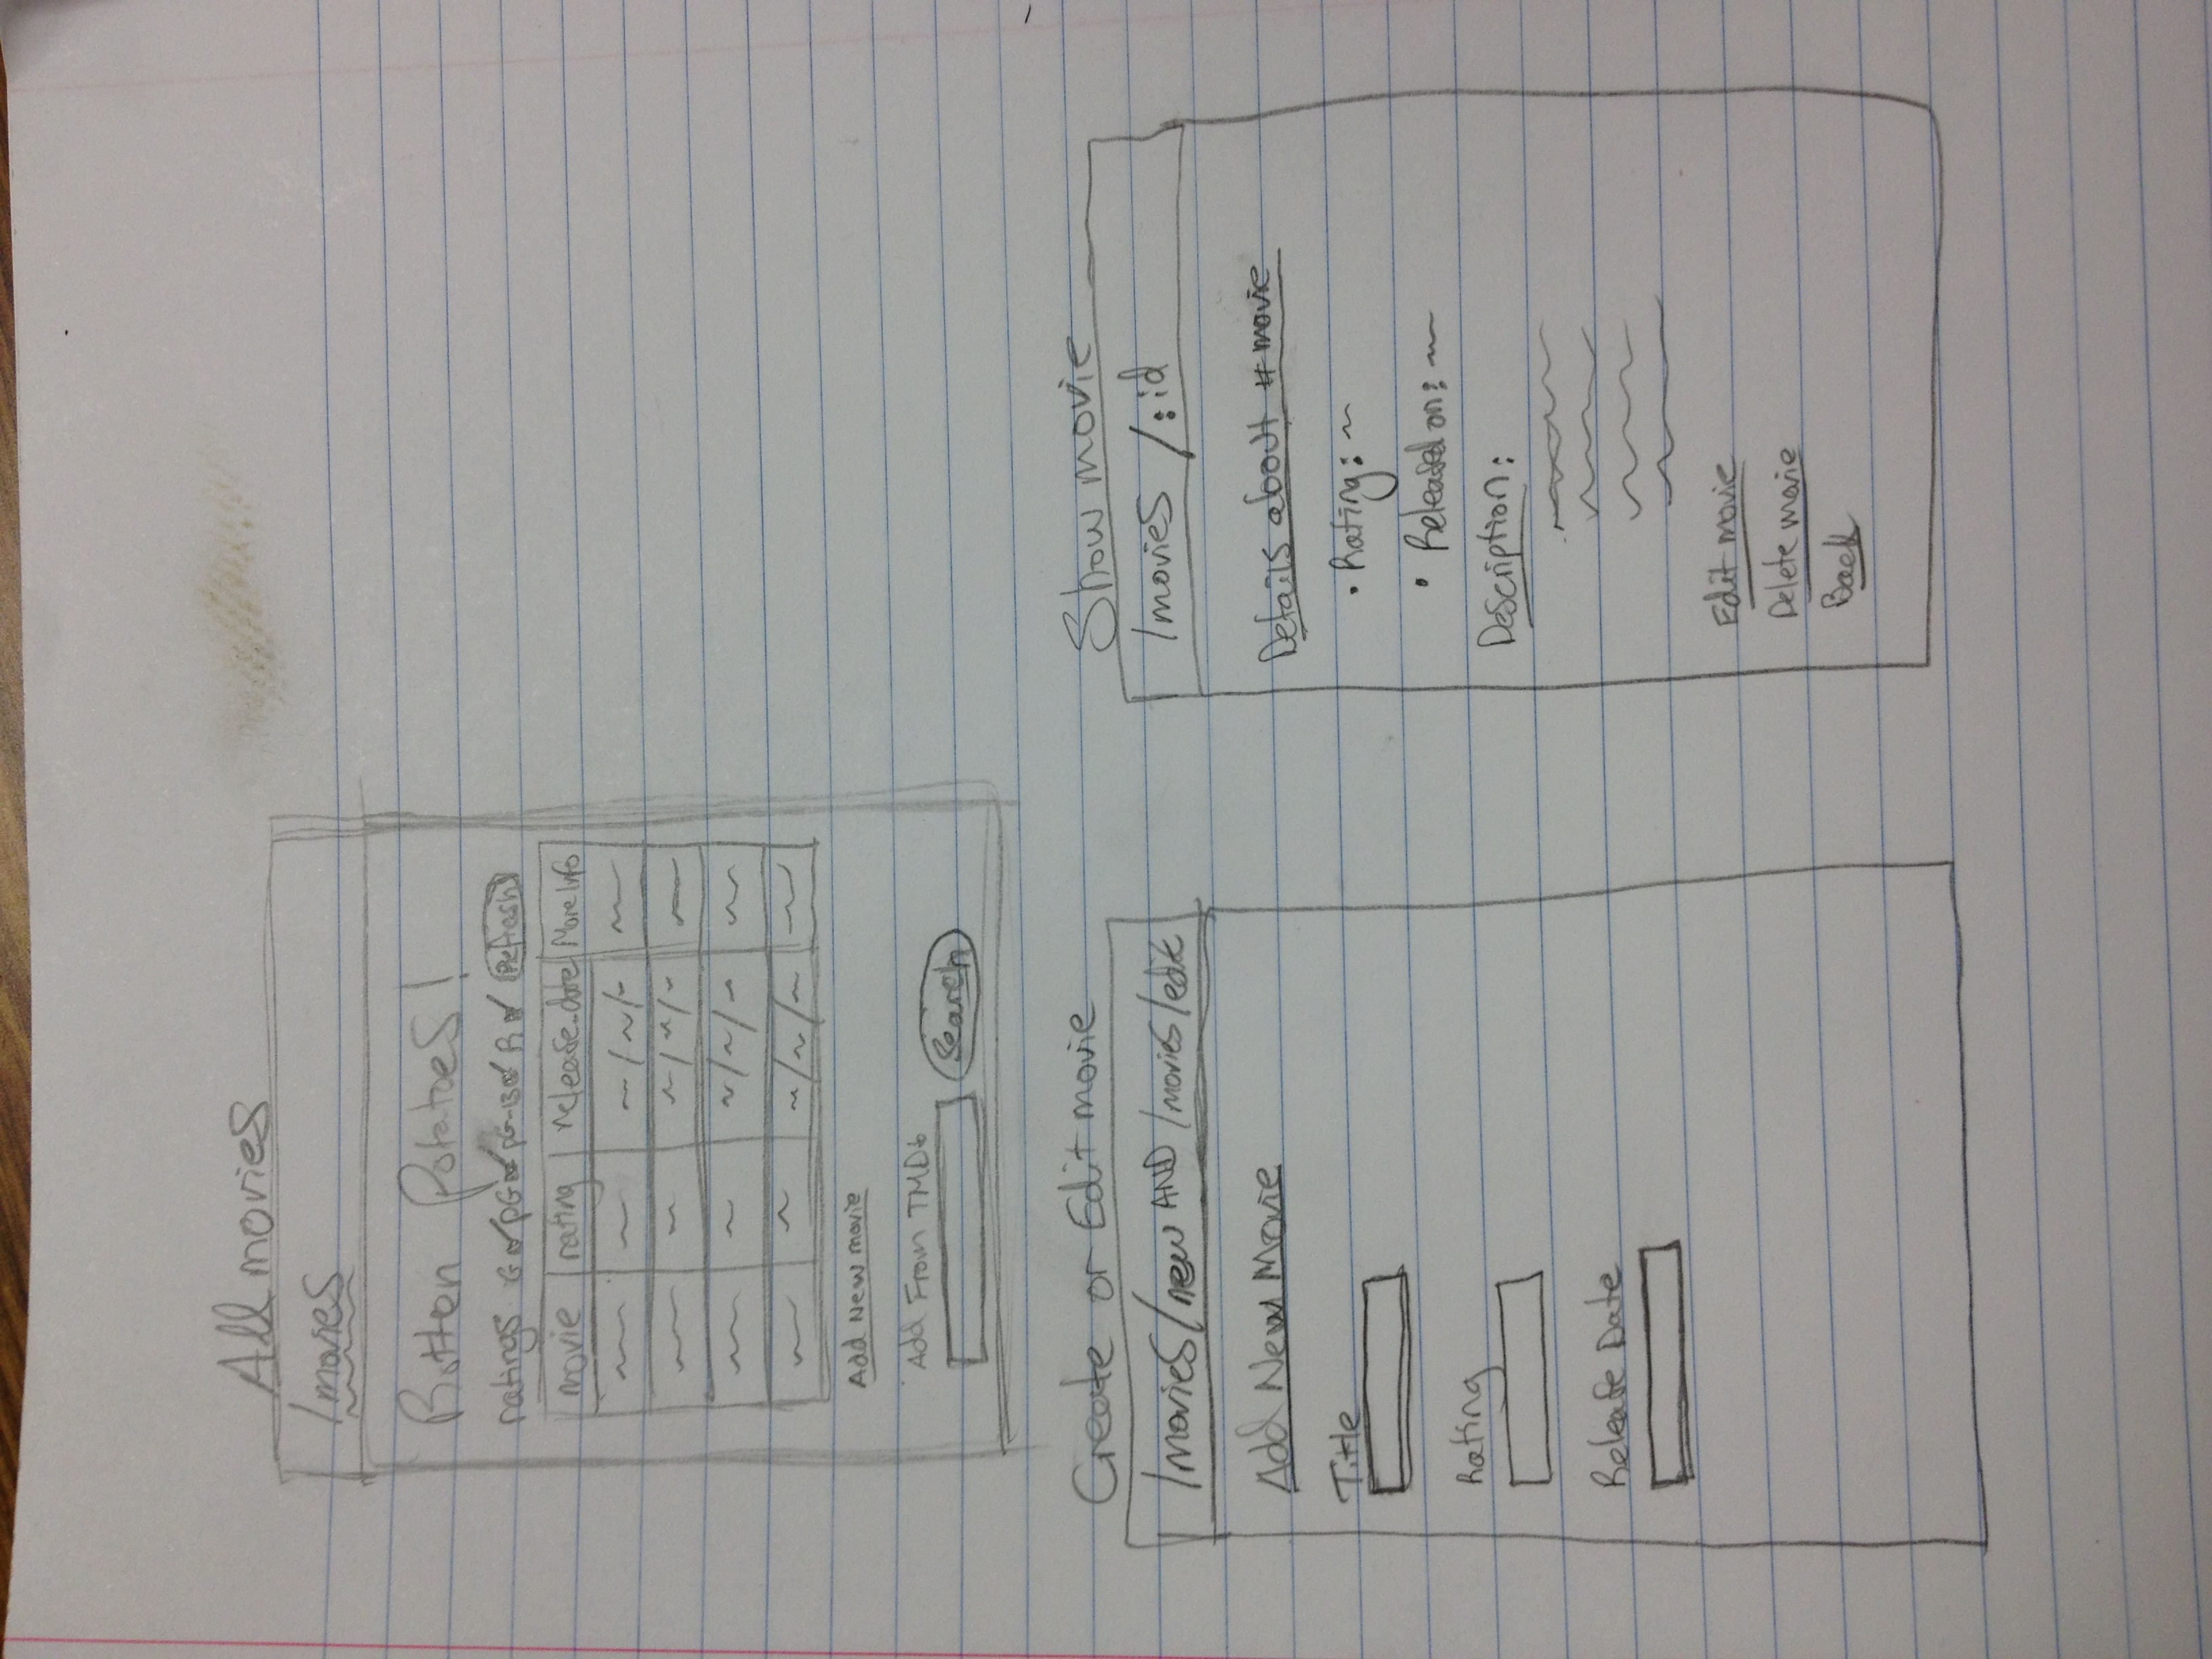 All movies
/movies
Rotten Potatoes!
ratings G PG PG-13 R Refresh
movie rating release_date More Info
Add New movie
Add From TMDb
Search
Create or Edit movie
/movies/new AND /movies/edit
Add New Movie
Title
Rating
Release Date
Show movie
/movies /:id
Details about #movie
• Rating: ~
• Released on: ~
Description:
Edit movie
Delete movie
Back